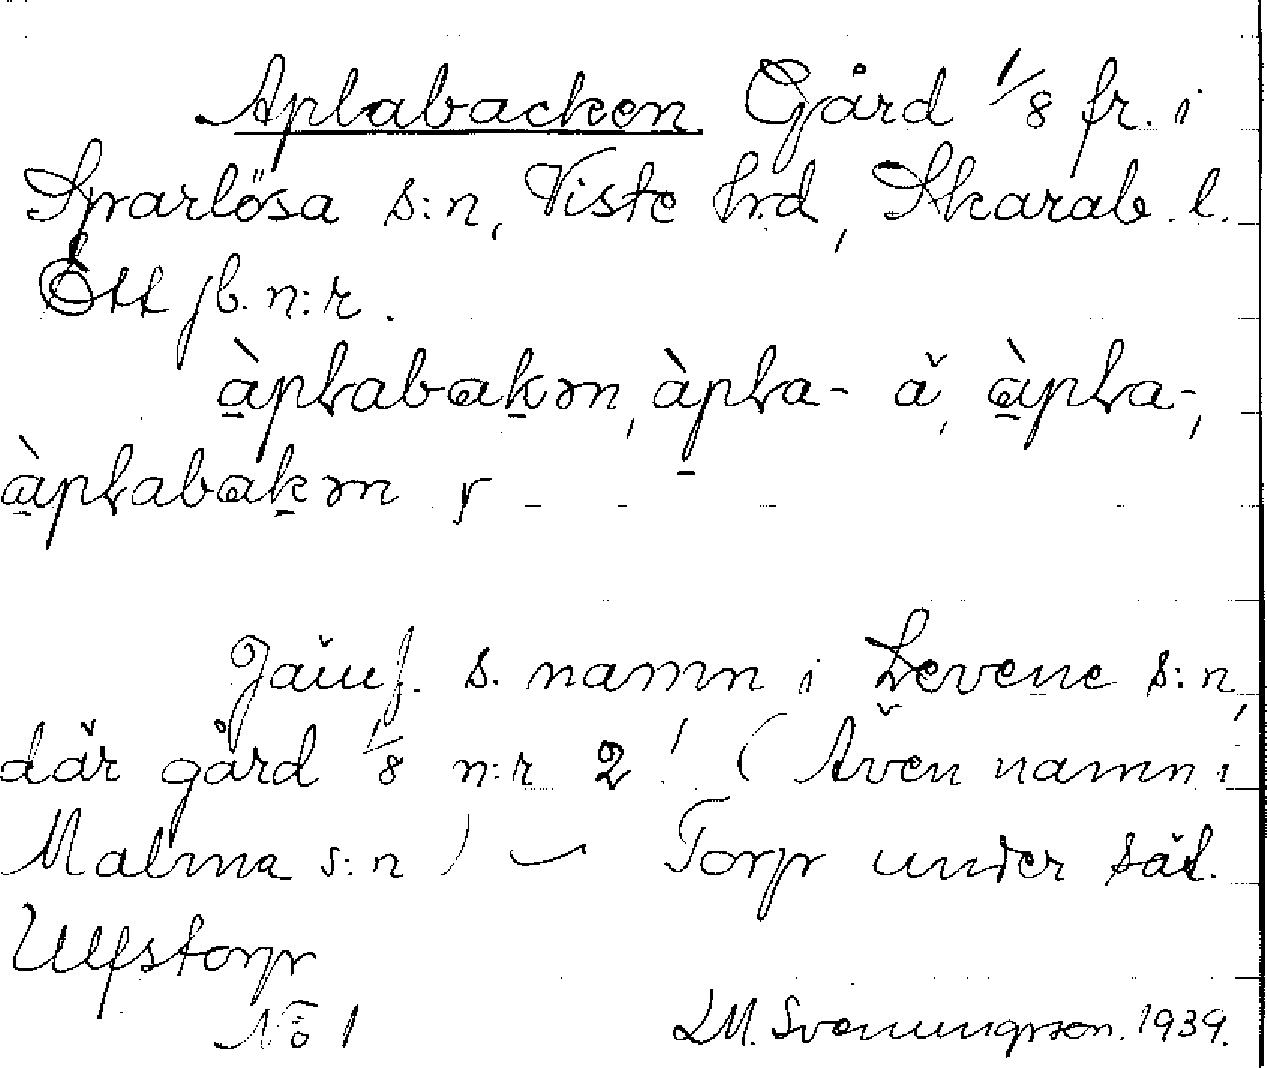 Aplabacken Gård 1/8 fr. i
Sparlösa s:n, Viste hrd, Skarab. l.
Ett jb. n:r.
àpɫabakən, àpɫa- ǎ, àpɫa-,
àpɫabakən r
Jämf. s. namn i Levene s:n,
där gård 1/8 n:r 2! (Även namn i
Malma s:n) — Torp under sät.
Ulfstorp
No 1 LM. Svenungsson. 1939.